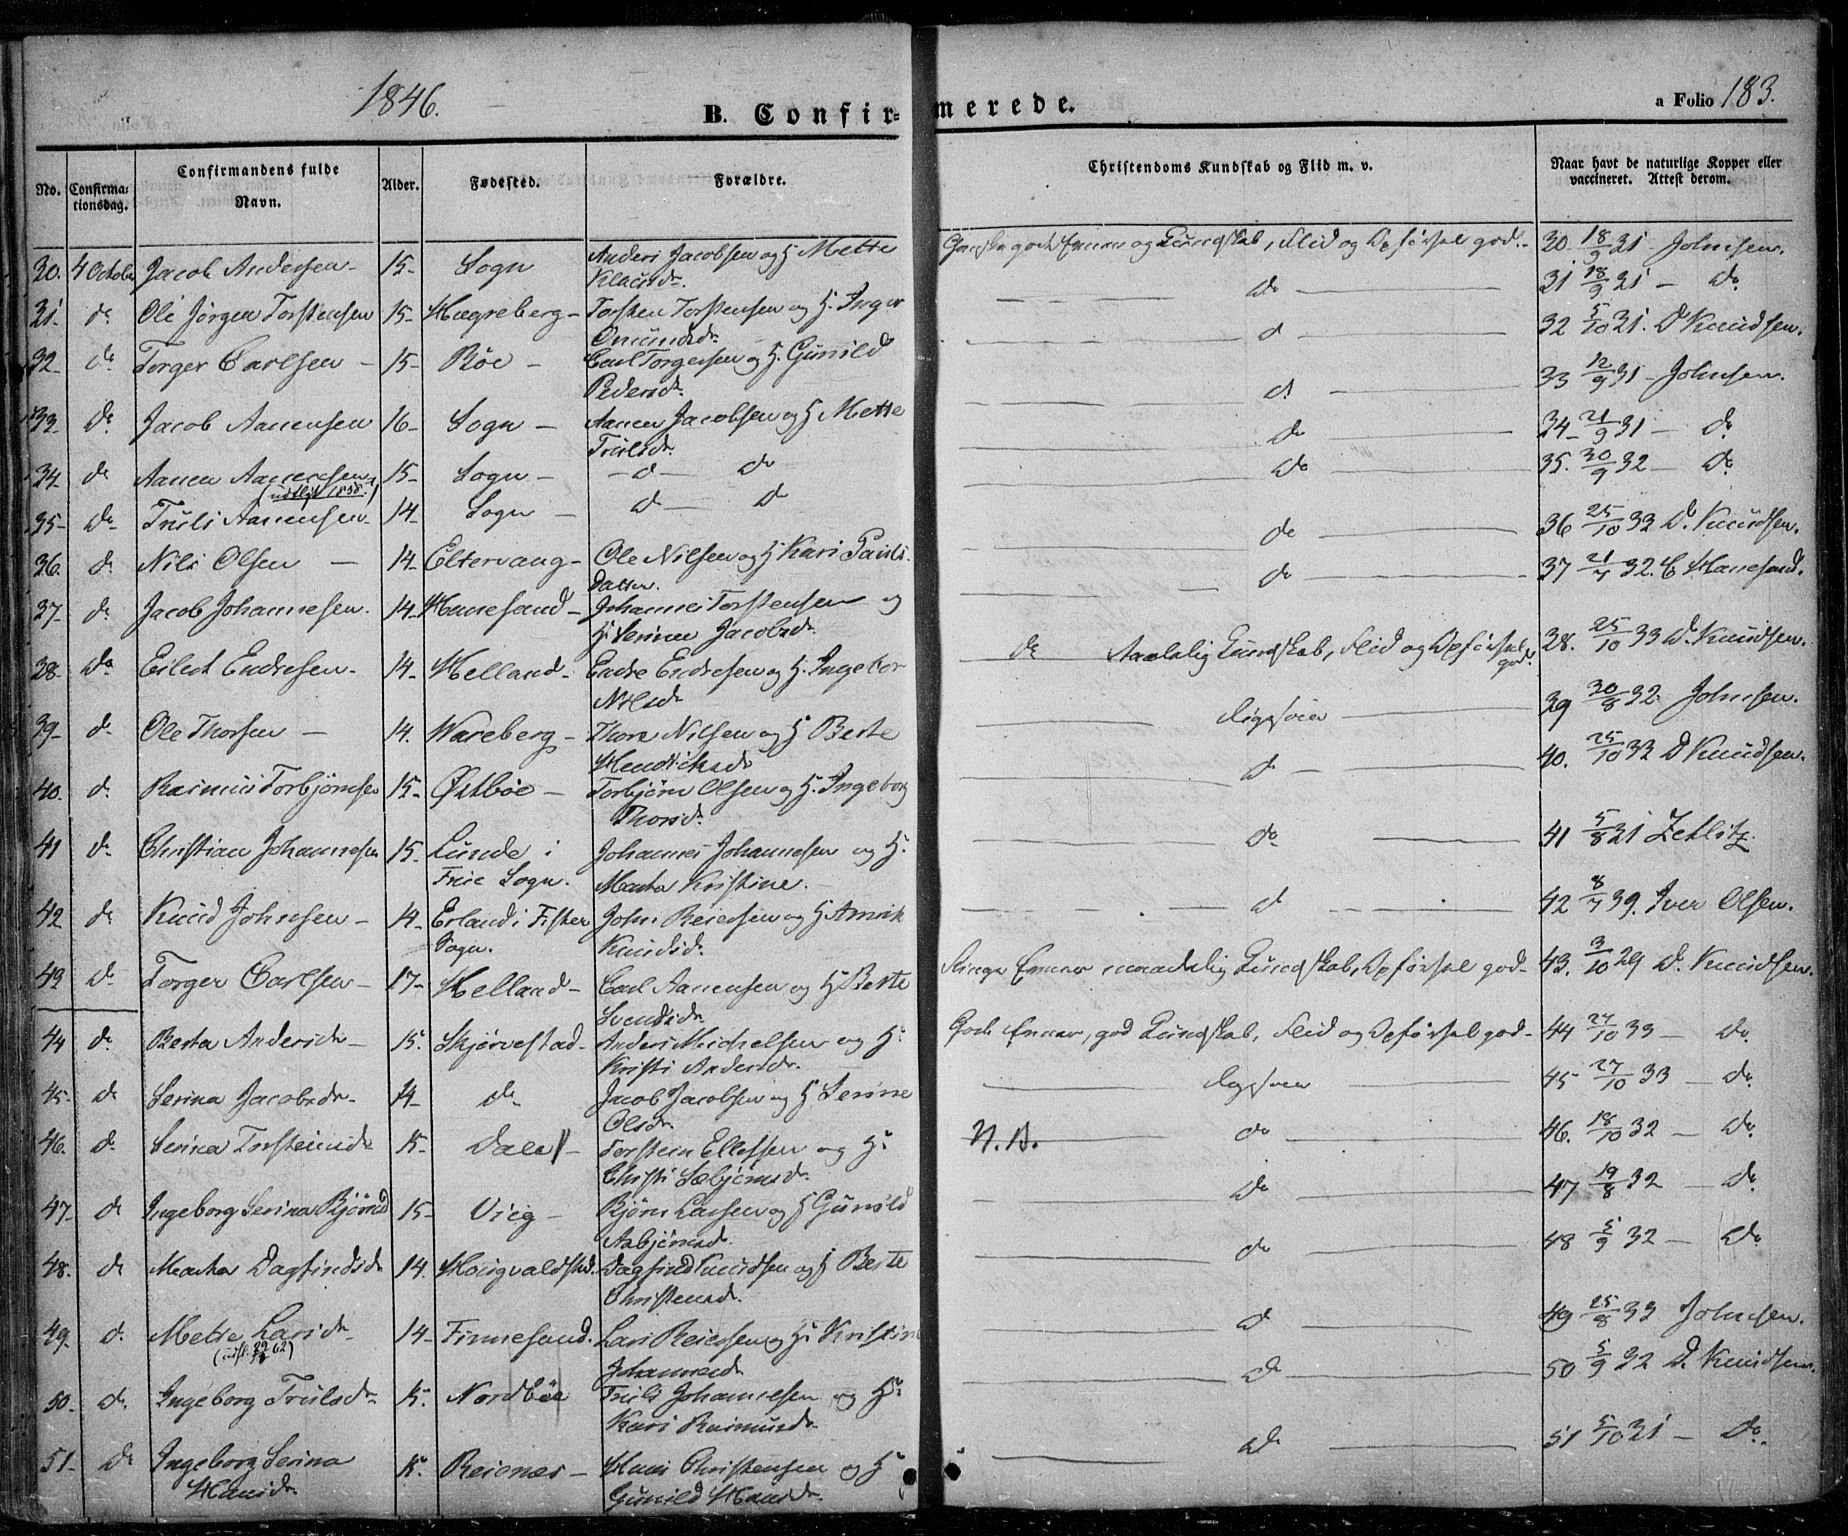 1846.
B. Confir=
merede.
a Folio 183.
No.
Confirma=
tionsdag.
Confirmandens fulde
Navn.
Alder.
Fødested.
Forældre.
Christendoms Kundskab og Flid m. v.
Naar havt de naturlige Kopper eller
vaccineret. Attest derom.
30. 4 October Jacob Andersen 15- Sogn Anders Jacobsen og H. Mette
Klausd. Ganske gode Evner og Kundskab, Flid og Opførsel god. 30. 18/9 31 Johnsen.
31- do Ole Jørgen Torstensen 15- Hægreberg- Torsten Torstensen og H. Inger
Omundsd. do 31 18/9 31 - do
32- do Torger Carlsen - 15- Bøe - Carl Torgersen og H. Gunild
Pedersd. d 32 5/10 31. D Knudsen.
33- do Jacob Aanensen 16- Sogn - Aanen Jacobsen og H Mette
Trulsd. d. 33 12/9 31 - Johnsen.
34- do Aanen Aanensen 15- Sogn - d do do 34- 21/9 31 - do
(udflyt 1858.)
35- do Truls Aanensen 14- Sogn - d d do 35. 30/9 32 - do
36- d. Nils Olsen - 14- Eltervaag- Ole Nilsen og H Kari Pauls
datter. do 36 25/10 32 D. Knudsen.
37- d. Jacob Johannesen. 14- Hanesand- Johannes Torstensen og
H. Serine Jacobsd. do 37 21/7 32. C Hanesand.
38- do Eilert Endresen. 14- Helland- Endre Endresen og H. Ingebor
Nilsd do Maadelig Kundskab, Flid og Opførsel
god. 38. 25/10 33 D. Knudsen.
39- d. Ole Thorsen - 14. Wareberg- Thore Nilsen og H Berte
Hendriksd. ligesaa 39 30/8 32. Johnsen.
40. d. Rasmus Torbjørnsen 15- Østbøe - Torbjørn Olsen og H. Ingeborg
Thorsd. d 40. 25/10 33 D Knudsen.
41 d. Christian Johannesen 15. Lunde i
Sogn. Johannes Johannesen og H.
Martha Kristine. do 41 5/8 31 Zetlitz
42 do Knud Johnsen - 14- Erland i Fister
Sogn. John Reiersen og H
Knudsd. d 42 8/7 39. Iver Olsen.
43 do Torger Carlsen - 17- Helland- Carl Aanensen og H Berte
Svendsd. Ringe Evner maadelig Kundskab, Opførsel god- 43. 3/10 29 D. Knudsen.
44 do Berta Andersd. - 15. Skjørvestad- Anders Michelsen og H.
Kristi Andersd. Gode Evner, god Kundskab, Flid og Opførsel god- 44 27/10 33 - do
45- do Serina Jacobsd. 14- do Jacob Jacobsen og H Serine
Olsd. ligesaa 45 27/10 33 - do
46. d. Serina Torsteinsd. 15- Dale - Torstein Ellefsen og H.
Christi Sæbjørnsd. N.B. do 46. 18/10 32 - do
47- do Ingeborg Serina Bjørnsd 15- Vieg - Bjørn Larsen og H Gunild
Asbjørnsd. do 47 19/8 32 - do
48. do Martha Dagfindsd. 14. Dagfind Knudsen og H Berte
Christensd. do 48 5/9 32 - do
49. d. Mette Larsd. 14- Finnesand. Lars Reiersen og H. Kristine
Johannesd. d 49 25/8 33 Johnsen.
50- do Ingeborg Trulsd. 15. Nordbøe Truls Johannesen og H.
Kari Rasmusd. do 50 5/9 32 D. Knudsen.
51- do Ingeborg Serina
Hansd. 15. Reienæs - Hans Christensen og H
Gunild Hansd. do 51 5/10 31 - do